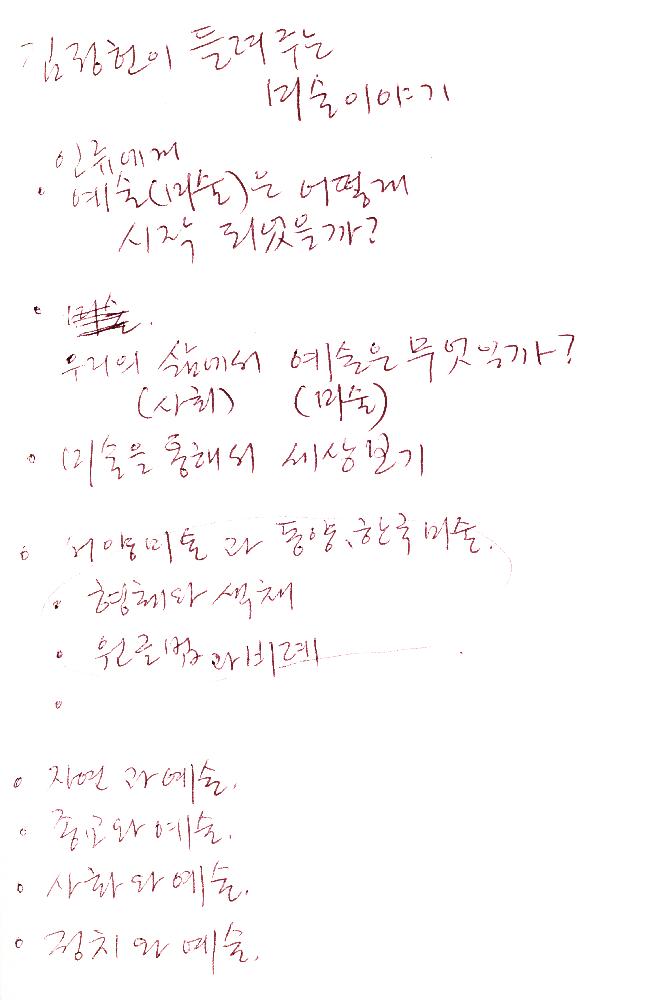 김정헌이 들려주는
미술이야기
인류에게
• 예술(미술)은 어떻게
시작 되었을까?
• 미술.
우리의 삶에서 예술은 무엇인가?
(사회) (미술)
• 미술을 통해서 세상보기
• 서양미술과 동양、한국미술.
• 형체와 색채
• 원근법과 비례
•
• 자연과 예술.
• 종교와 예술.
• 사회와 예술.
• 정치와 예술.